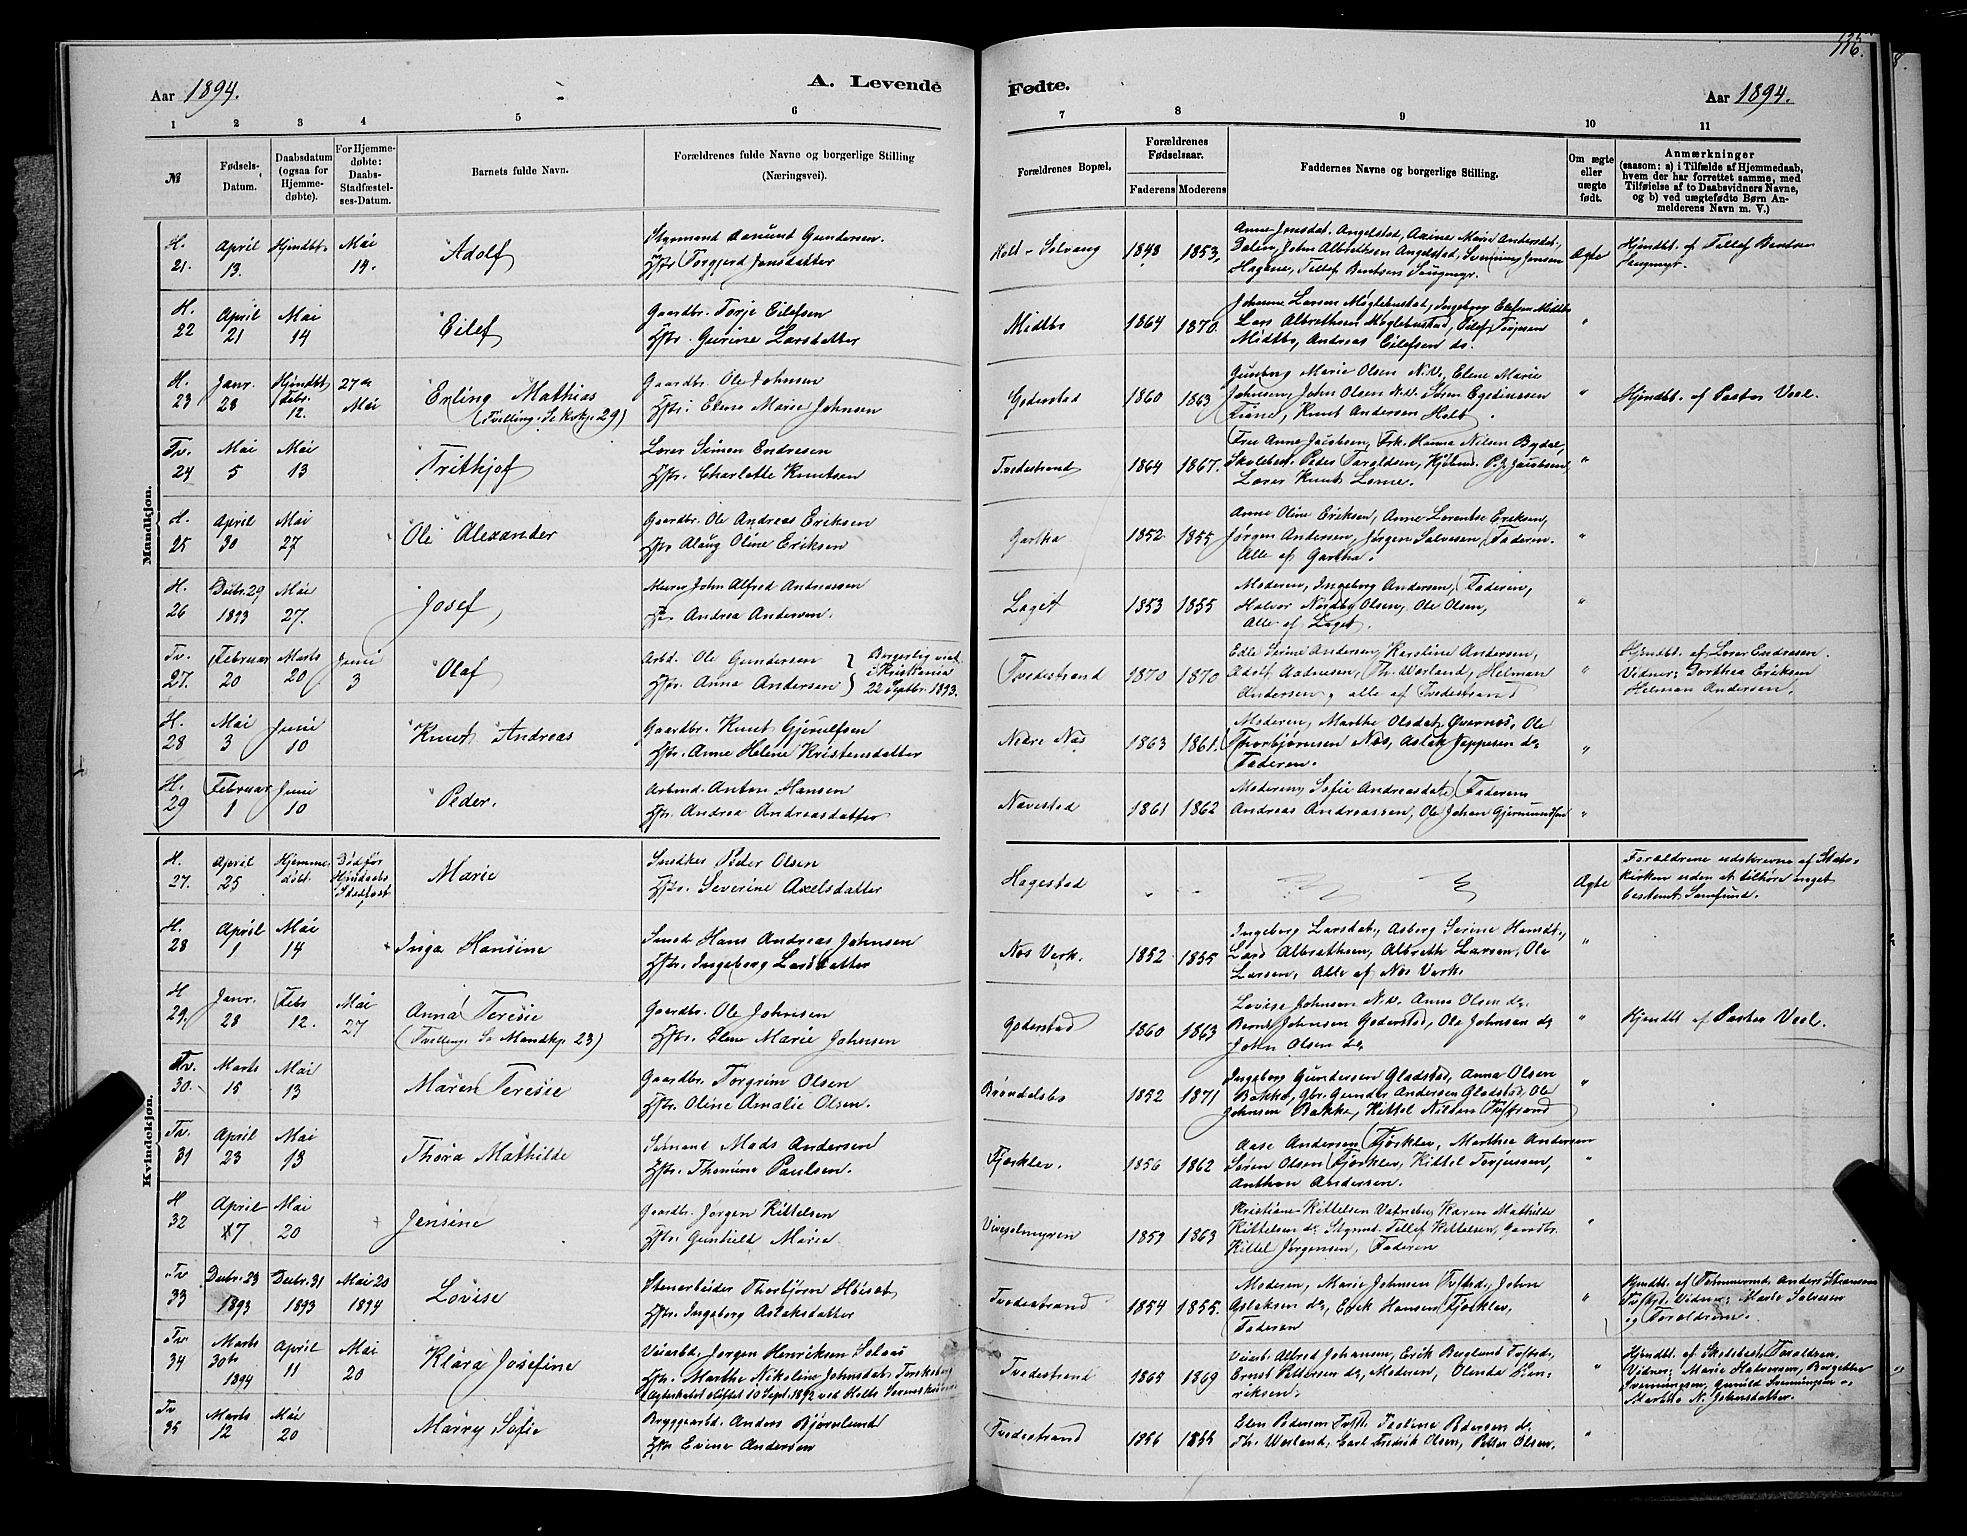 116.
Aar 1894.
A. Levende
Fødte.
Aar 1894.
1 2 3 4 5 6 7 8 9 10 11
№
Fødsels-
Datum.
Daabsdatum
(ogsaa for
Hjemme-
døbte).
For Hjemme-
døbte:
Daabs-
Stadfæstel-
ses-Datum.
Barnets fulde Navn.
Forældrenes fulde Navne og borgerlige Stilling
(Næringsvei).
Forældrenes Bopæl.
Forældrenes
Fødselsaar.
Faderens Moderens
Faddernes Navne og borgerlige Stilling.
Om ægte
eller
uægte
født.
Anmærkninger
(saasom: a) i Tilfælde af Hjemmedaab,
hvem der har forrettet samme, med
Tilføielse af to Daabsvidners Navne,
og b) ved uægtefødte Børn An-
melderens Navn m. V.)
Mandkjøn.
H. 21. April 13. Hjmdbt. Mai 14. Adolf
Gundersen.
Hstr. Torgjerd Jensdatter
Holt - Solvang 1848 1853
Anne Jensdat. Angelstad, Axine Marie Andersdat.
Dalen, John Albretsen Angelstad, Svenning Jensen
Hagane, Tellef Bentsen Saugmyr.
Ægte
Hjmdbt. af Tellef Bentsen
Saugmyr.
H. 22 April 21 Mai 14 Eilef
Gaardbr. Torje Eilefsen
Hstr. Gurine Larsdatter
Midtbø 1864 1870.
Lars Albrethsen Møglebustad, Eilef Torjesen
Midtbø, Andreas Eilefsen do.
"
H. 23 Janr. 28 Hjmdbt Febr. 12. 27de Mai Erling Mathias
(Tvilling. Se Kvkj. 29)
Gaardbr. Ole Johnsen
Hstr. Elene Marie Johnsen
Goderstad 1860 1863
Gunborg Marie Olsen N.V., Elene Marie
Johnsen, John Olsen N.V. Søren Egediussen
Knut Andersen Holt.
"
Hjmdbt. af Pastor Veel.
Tv. 24 Mai 5 Mai 13 Frithjof
Lærer Simon Endresen
Hstr. Charlotte Knutsen
Tvedestrand 1864 1867.
Fru Anne Jacobsen, Frk. Hanna Nilsen Bydal,
Skolebest. Peder Taraldsen, Kjøbmd. P. Jacobsen,
Lærer Knut Lone.
"
H. 25 April 30 Mai 27 Ole Alexander
Gaardbr. Ole Andreas Eriksen
Hstr. Alaug Oline Eriksen
Gartha 1852 1855
Anne Oline Eriksen, Anne Lorentse Eriksen,
Jørgen Andersen, Jørgen Salvesen, Faderen.
Alle af Gartha.
"
H. 26 Decbr. 29 1893 Mai 27. Josef
Murer John Alfred Andreassen
Hstr. Andrea Andersen.
Laget 1853 1855
Moderen, Ingeborg Andersen, Faderen,
Halvor Nordby Olsen, Ole Olsen,
Alle af Laget.
"
Tv. 27. Februar 20 Marts 20 Juni 3 Olaf
Arbd. Ole Gundersen
Hstr. Anna Andersen
Borgerlig viet
i Kristiania
22 Septbr. 1893.
Tvedestrand 1870 1870
Edle Serine Andersen, Karoline Andersen,
Adolf Aadnesen, Th. Worland, Helman
Andersen, alle af Tvedestrand
"
Hjmdbt. af Lærer Endresen.
Vidner: Dorthea Eriksen
Helman Andersen.
H. 28 Mai 3 Juni 10 Knut Andreas
Gaardbr. Knut Gjerulfsen
Hstr. Anne Helene Kristensdatter
Nedre Næs 1863 1861.
Moderen, Marthe Olsdat. Øvernæs, Ole
Thorbjørnsen Næs, Aslak Jeppesen do
Faderen.
"
H. 29 Februar 1 Juni 10 Peder.
Arbmd. Anton Hansen
Hstr. Andrea Andreasdatter
Navestad 1861 1862
Moderen, Sofie Andreasdat. Faderen
Andreas Andreassen, Ole Johan Gjermundsen
"
Kvindekjøn.
H. 27. April 25 Hjemme-
døbt. Død før
Hjmdaabs
Stadfæst Marie
Snedker Peder Olsen
Hstr. Severine Axelsdatter
Hagestad " "
Ægte
Forældrene udskrevne af Stats-
kirken uden at tilhøre noget
bestemt Samfund.
H. 28 April 1 Mai 14 Inga Hansine
Smed Hans Andreas Johnsen
Hstr. Ingeborg Larsdatter
Næs Verk. 1852 1855
Ingeborg Larsdat., Asberg Serine Hansdt.,
Lars Albrethsen, Albreth Larsen, Ole
Larsen, Alle af Næs Verk.
"
H 29. Janr. 28 Febr 12. Mai 27 Anna Teresie
(Tvilling. Se Mandkj. 23)
Gaardbr. Ole Johnsen
Hstr. Elene Marie Johnsen
Goderstad 1860 1863
Lovise Johnsen N.V. Anna Olsen do.
Bernt Johnsen Goderstad, Ole Johnsen do
John Olsen do.
"
Hjemdbt af Pastor Veel.
Tv. 30. Marts 15 Mai 13 Maren Teresie
Gaardbr. Torgrim Olsen
Hstr. Oline Amalie Olsen.
Brøndelsbo 1852 1871
Ingeborg Gundersen Gladstad, Anna Olsen
Bakke, Gbr. Gunder Andersen Gladstad, Ole
Johnsen Bakke, Kittel Nilsen Tvdstrand
"
Tv. 31 April 23 Mai 13 Thora Mathilde
Sømand Mads Andersen
Hstr. Thomine Paulsen.
Fjærklev. 1856 1862
Aase Andersen Fjærklev, Marthea Andersen
Søren Olsen Fjærklev, Kittel Torjussen,
Anthon Andersen.
"
H 32 April 7 Mai 20 Jensine
Gaardbr. Jørgen Kittelsen
Hstr. Gunhild Marie
Vivesolmyren 1859 1863
Kristiane Kittelsen Vatnebo, Karen Mathilde
Kittelsen do Stymd. Tellef Kittelsen, Gaardbr.
Kittel Jørgensen, Faderen
"
Tv 33 Decbr. 23 1893 Decbr. 31 1893 Mai 20 1894 Lovise
Stenarbeider Thorbjørn
Hstr. Ingeborg Aslaksdatter
Tvedestrand 1854 1855.
Moderen, Marie Johnsen Tvdstd., John
Aslaksen do, Erik Hansen Fjærklev,
Faderen
"
Hjmdbt. af Tømmermd. Anders
Tvdstd. Vidner: Marte Salvesen
og Forældrene.
Tv. 34 Marts 30te 1894 April 11 Mai 20 Klara Josefine
Veiarbd. Jørgen Henriksen
Hstr. Marthe Nikoline Johnsdat.
Ægteskabet stiftet 10 Sept. 1892 ved Holts
Tvedestrand 1865 1869
Veiarb. Alfred Johansen, Erik Berglund Tvdstd.,
Ernst Pettersen do, Moderen, Olende Hen-
riksen.
"
Hjmdbt. af Skolebest. Taraldsen,
Vidner: Marie Halvorsen, Borgekke
Svenningsen, Gunild Svenningsen o.
Marthe N. Johnsdatter.
Tv 35 Marts 12 Mai 20 Marry Sofie
Bryggearbd. Anders Bjørnlund
Hstr Evine Andersen
Tvedestrand 1856 1855
Elen Pedersen Tvdstd. Teoline Pedersen do
Th. Worland, Carl Fredrik Olsen, Petter Olsen.
"